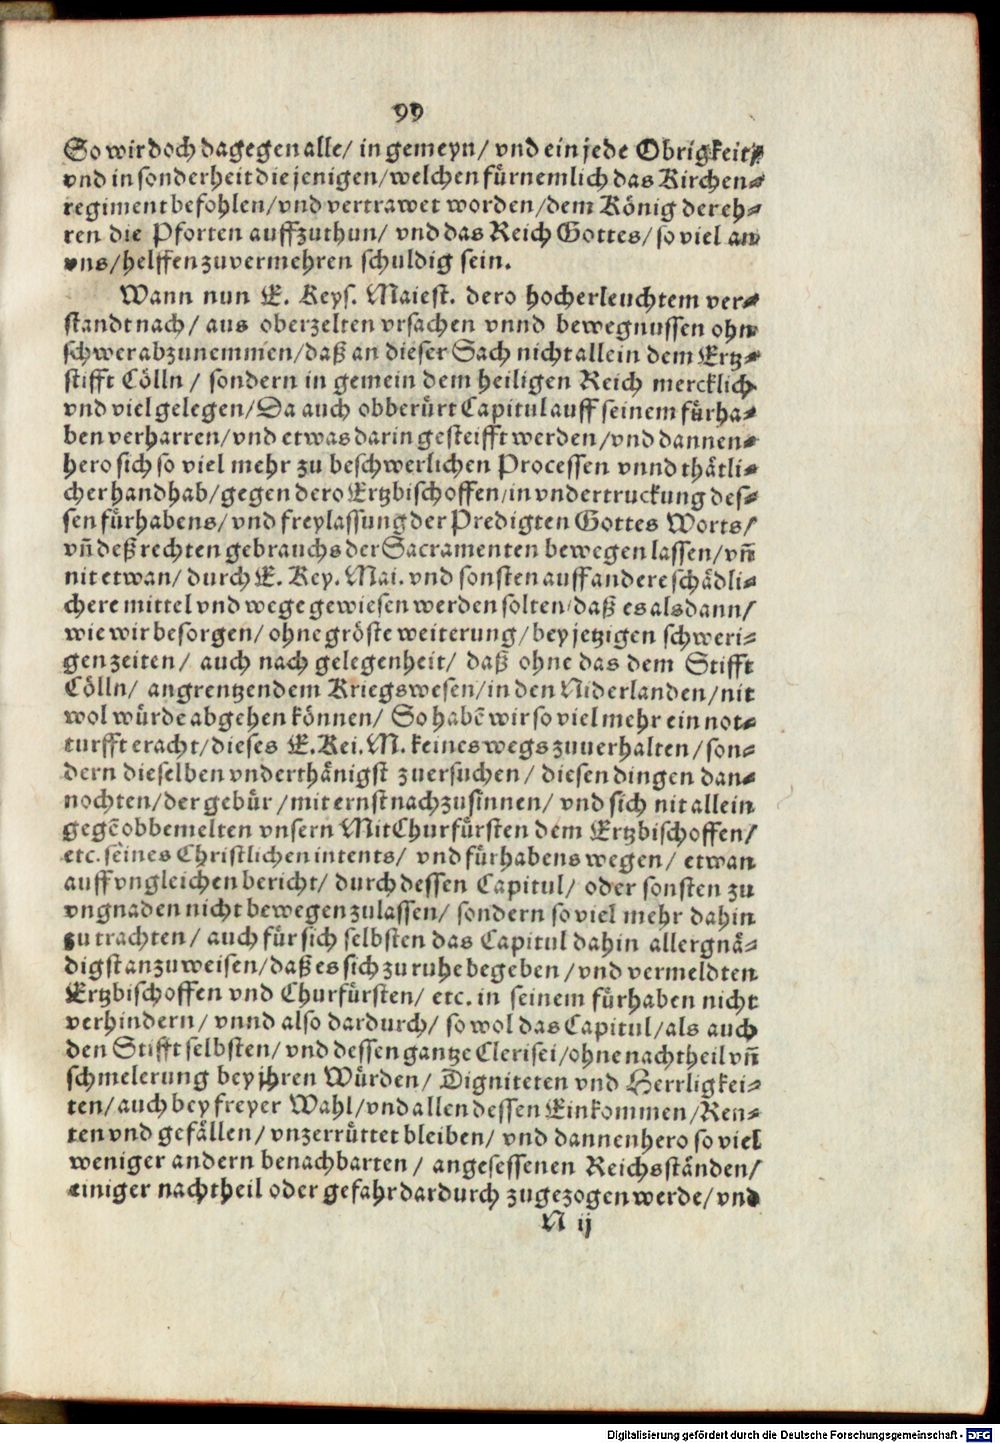 99
So wir doch dagegen alle/ in gemeyn/ vnd ein jede Obrigkeit/
vnd in sonderheit die jenigen/welchen fürnemlich das Kirchen⸗
regiment befohlen/vnd vertrawet worden/dem König der eh⸗
ren die Pforten auffzuthun/ vnd das Reich Gottes/ so viel an
vns/helffen zuvermehren schuldig sein.
Wann nun E. Keys. Maiest. dero hocherleuchtem ver⸗
standt nach/ aus oberzelten vrsachen vnnd bewegnussen ohn
schwer abzunemmen/daß an dieser Sach nicht allein dem Ertz⸗
stifft Cölln / sondern in gemein dem heiligen Reich mercklich
vnd viel gelegen/Da auch obberürt Capitul auff seinem fürha⸗
ben verharren/vnd etwas darin gesteifft werden/vnd dannen⸗
hero sich so viel mehr zu beschwerlichen Processen vnnd thätli⸗
cher handhab/gegen dero Ertzbischoffen/in vndertruckung des⸗
sen fürhabens/vnd freylassung der Predigten Gottes Worts/
vñ deß rechten gebrauchs der Sacramenten bewegen lassen/vñ
nit etwan/ durch E. Key. Mai. vnd sonsten auff andere schädli⸗
chere mittel vnd wege gewiesen werden solten/daß es alsdann/
wie wir besorgen/ ohne gröste weiterung/bey jetzigen schweri⸗
gen zeiten/ auch nach gelegenheit/ daß ohne das dem Stifft
Cölln/ angrentzendem Kriegswesen/in den Niderlanden/nit
wol würde abgehen können/ So habē wir so viel mehr ein not⸗
turfft eracht/dieses E.Kei.M. keines wegs zuuerhalten/son⸗
dern dieselben vnderthänigst zuersuchen/ diesen dingen dan⸗
nochten/der gebür /mit ernst nachzusinnen/ vnd sich nit allein
gegē obbemelten vnsern MitChurfürsten dem Ertzbischoffen/
etc. seines Christlichen intents/ vnd fürhabens wegen/ etwan
auff vngleichen bericht/ durch dessen Capitul/ oder sonsten zu
vngnaden nicht bewegen zulassen/ sondern so viel mehr dahin
zu trachten/ auch für sich selbsten das Capitul dahin allergnä⸗
digst anzuweisen/daß es sich zu ruhe begeben /vnd vermeldten
Ertzbischoffen vnd Churfürsten/ etc. in seinem fürhaben nicht
verhindern/ vnnd also dardurch/ so wol das Capitul/als auch
den Stifft selbsten/ vnd dessen gantze Clerisei/ohne nachtheil vñ
schmelerung bey jhren Würden/ Digniteten vnd Herrligkei⸗
ten/auch bey freyer Wahl/vnd allen dessen Einkommen/Ren⸗
ten vnd gefällen/ vnzerrüttet bleiben/ vnd dannenhero so viel
weniger andern benachbarten / angesessenen Reichsständen/
einiger nachtheil oder gefahr dardurch zugezogen werde/ vnd
N ij
Digitalisierung gefördert durch die Deutsche Forschungsgemeinschaft - DFG